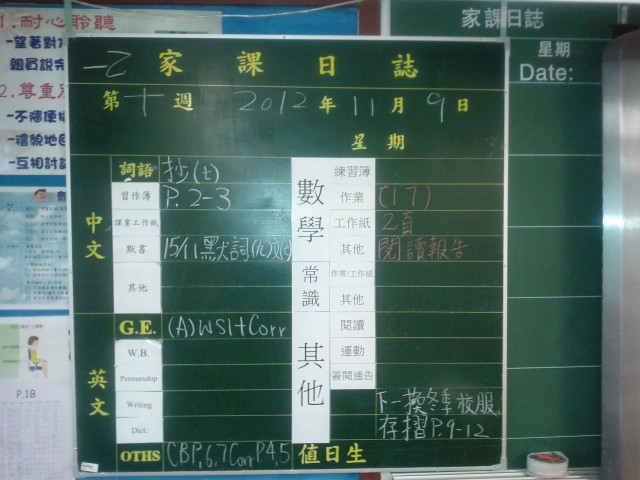 1.耐心聆聽
-望著對方
組員說完
2.尊重別
-不隨便
-禮貌地回
-互相討論
P.1B
家課日誌
星期
Date:
一乙 家課日誌
第十週 2012年11月9日
星期
中文
詞語 抄(七)
習作簿 P.2-3
課業工作紙
默書 15/11默詞(九)及(七)
其他
英文
G.E. (A)WS1+Corr
W.B.
Penmanship
Writing
Dict.
OTHS CBP.6,7Corr P.4,5
數學
練習簿
作業 (17)
工作紙 2頁
其他 閱讀報告
常識
作業/工作紙
其他
其他
閱讀
運動
簽閱通告
下一換冬季校服
存摺P.9-12
值日生